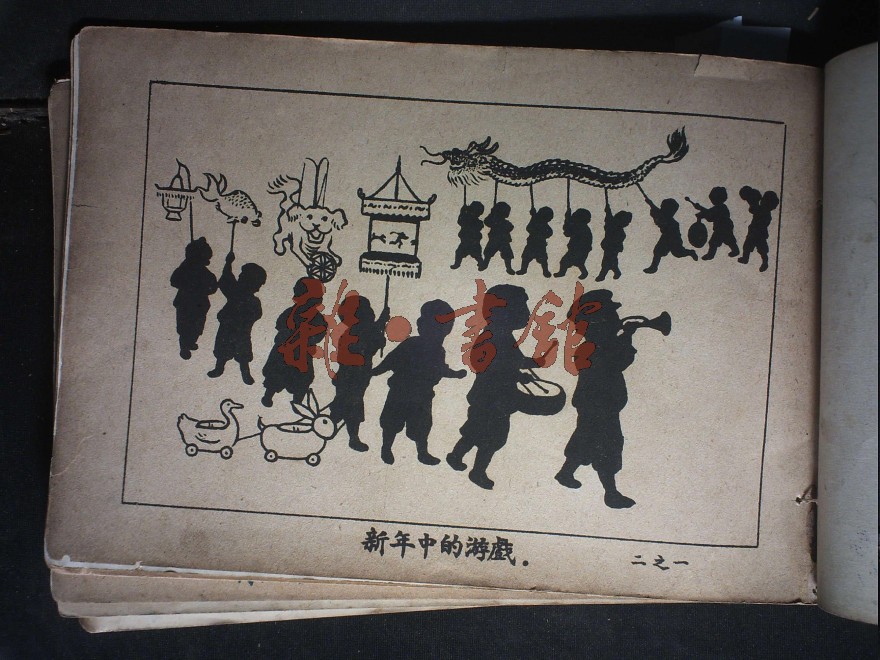 雜·書館
新年中的游戲．
二之一